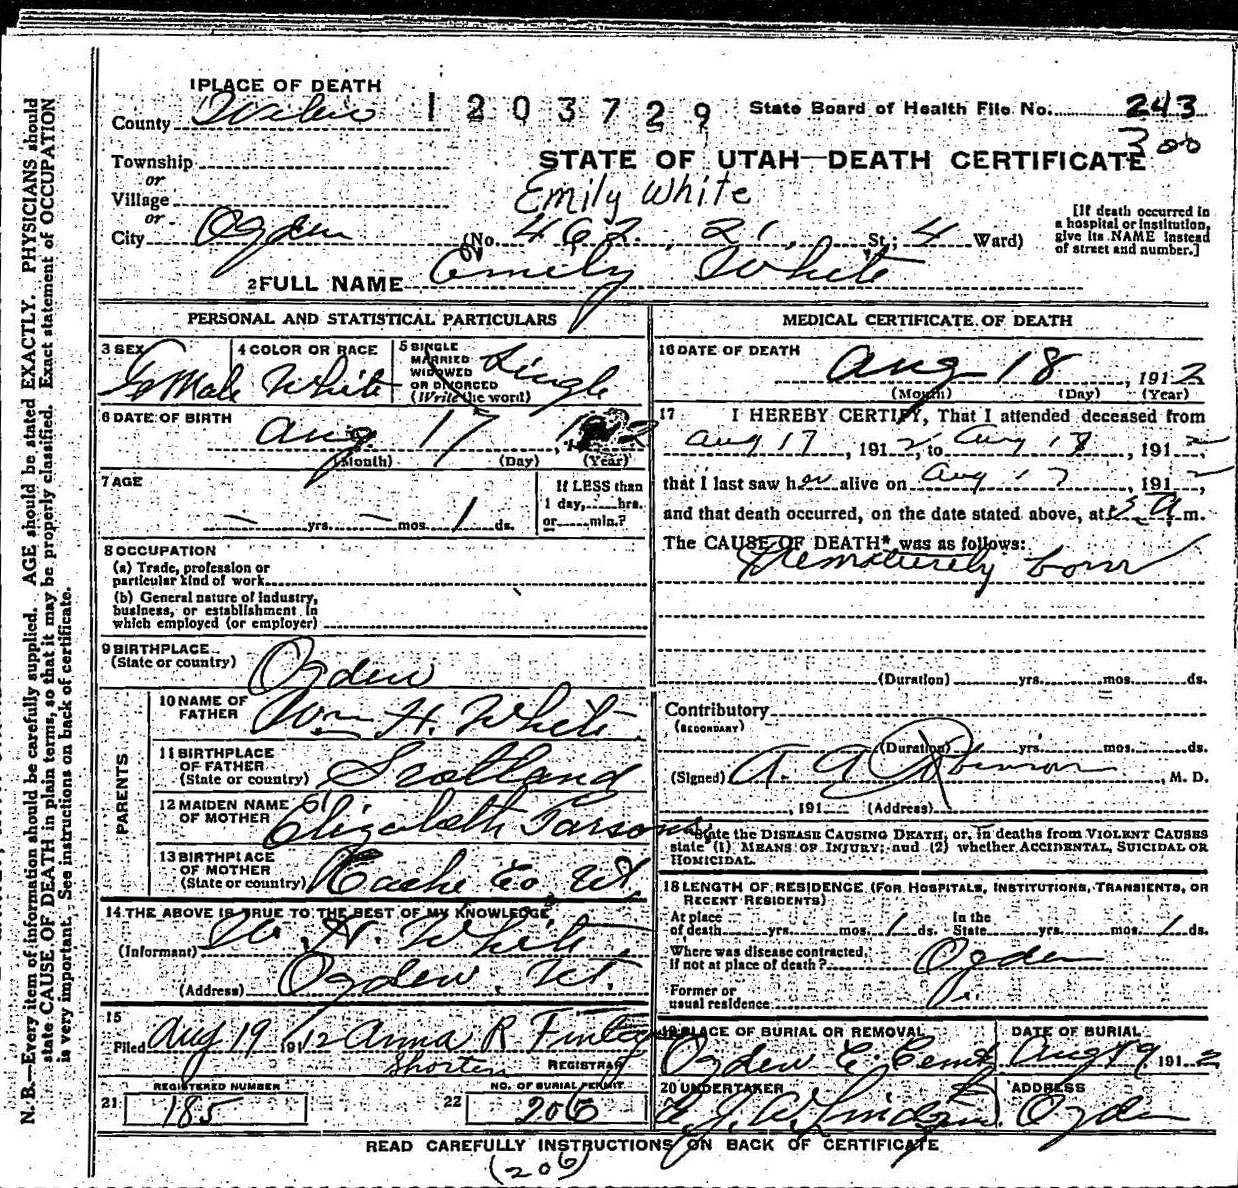 1 PLACE OF DEATH
1203729
State Board of Health File No. 243
300
County
Township
or
STATE OF UTAH—DEATH CERTIFICATE
Village
Emily White
or
City Ogden (No. 462. 21 St; 4 Ward)
[If death occurred in a hospital or institution, give its NAME instead of street and number.]
2 FULL NAME Emily White
PERSONAL AND STATISTICAL PARTICULARS
3 SEX Female
4 COLOR OR RACE White
5 SINGLE MARRIED WIDOWED OR DIVORCED (Write the word) Single
6 DATE OF BIRTH
Aug 17
(Month) (Day) (Year)
7 AGE
— yrs. — mos. 1 ds.
If LESS than 1 day, hrs. or min.?
8 OCCUPATION
(a) Trade, profession or particular kind of work
(b) General nature of industry, business, or establishment in which employed (or employer)
9 BIRTHPLACE (State or country) Ogden
PARENTS
10 NAME OF FATHER Wm H. White
11 BIRTHPLACE OF FATHER (State or country) Scotland
12 MAIDEN NAME OF MOTHER Elizabeth Parsons
13 BIRTHPLACE OF MOTHER (State or country) Cache Co, Ut.
14 THE ABOVE IS TRUE TO THE BEST OF MY KNOWLEDGE
(Informant) W. H. White
(Address) Ogden, Ut.
15
Filed Aug 19 1912 Anna R Finley
Shorten REGISTRAR
REGISTERED NUMBER
21 185
NO. OF BURIAL PERMIT
22 206
MEDICAL CERTIFICATE OF DEATH
16 DATE OF DEATH
Aug 18, 1912
(Month) (Day) (Year)
17 I HEREBY CERTIFY, That I attended deceased from
Aug 17, 1912, to Aug 18, 1912,
that I last saw her alive on Aug 17, 1912,
and that death occurred, on the date stated above, at A m.
The CAUSE OF DEATH* was as follows:
Prematurely born
(Duration) yrs. mos. ds.
Contributory
(SECONDARY)
(Duration) yrs. mos. ds.
(Signed) A. A. Robinson, M. D.
, 191 (Address)
*State the DISEASE CAUSING DEATH, or, in deaths from VIOLENT CAUSES state (1) MEANS OF INJURY; and (2) whether ACCIDENTAL, SUICIDAL OR HOMICIDAL.
18 LENGTH OF RESIDENCE (FOR HOSPITALS, INSTITUTIONS, TRANSIENTS, OR RECENT RESIDENTS)
At place of death yrs. mos. 1 ds. In the State yrs. mos. 1 ds.
Where was disease contracted, if not at place of death? Ogden
Former or usual residence
19 PLACE OF BURIAL OR REMOVAL
Ogden C. Cemt
DATE OF BURIAL
Aug 19 1912
20 UNDERTAKER
ADDRESS
Ogden
READ CAREFULLY INSTRUCTIONS ON BACK OF CERTIFICATE
(206)
N. B.—Every item of information should be carefully supplied. AGE should be stated EXACTLY. PHYSICIANS should
state CAUSE OF DEATH in plain terms, so that it may be properly classified. Exact statement of OCCUPATION
is very important. See instructions on back of certificate.